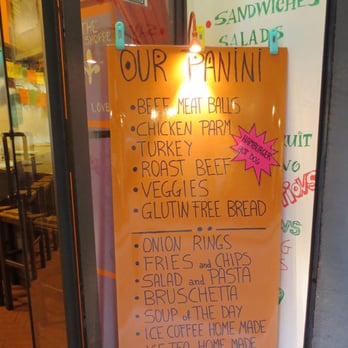 THE
LOVE
SANDWICHES
SALADS
OUR PANINI
• BEEF MEAT BALLS
• CHICKEN PARM
• TURKEY
• ROAST BEEF
• VEGGIES
• GLUTIN FREE BREAD
HAMBURGER
HOT DOG
• ONION RINGS
• FRIES and CHIPS
• SALAD and PASTA
• BRUSCHETTA
• SOUP of THE DAY
• ICE COFFEE HOME MADE
ICE TEA HOME MADE